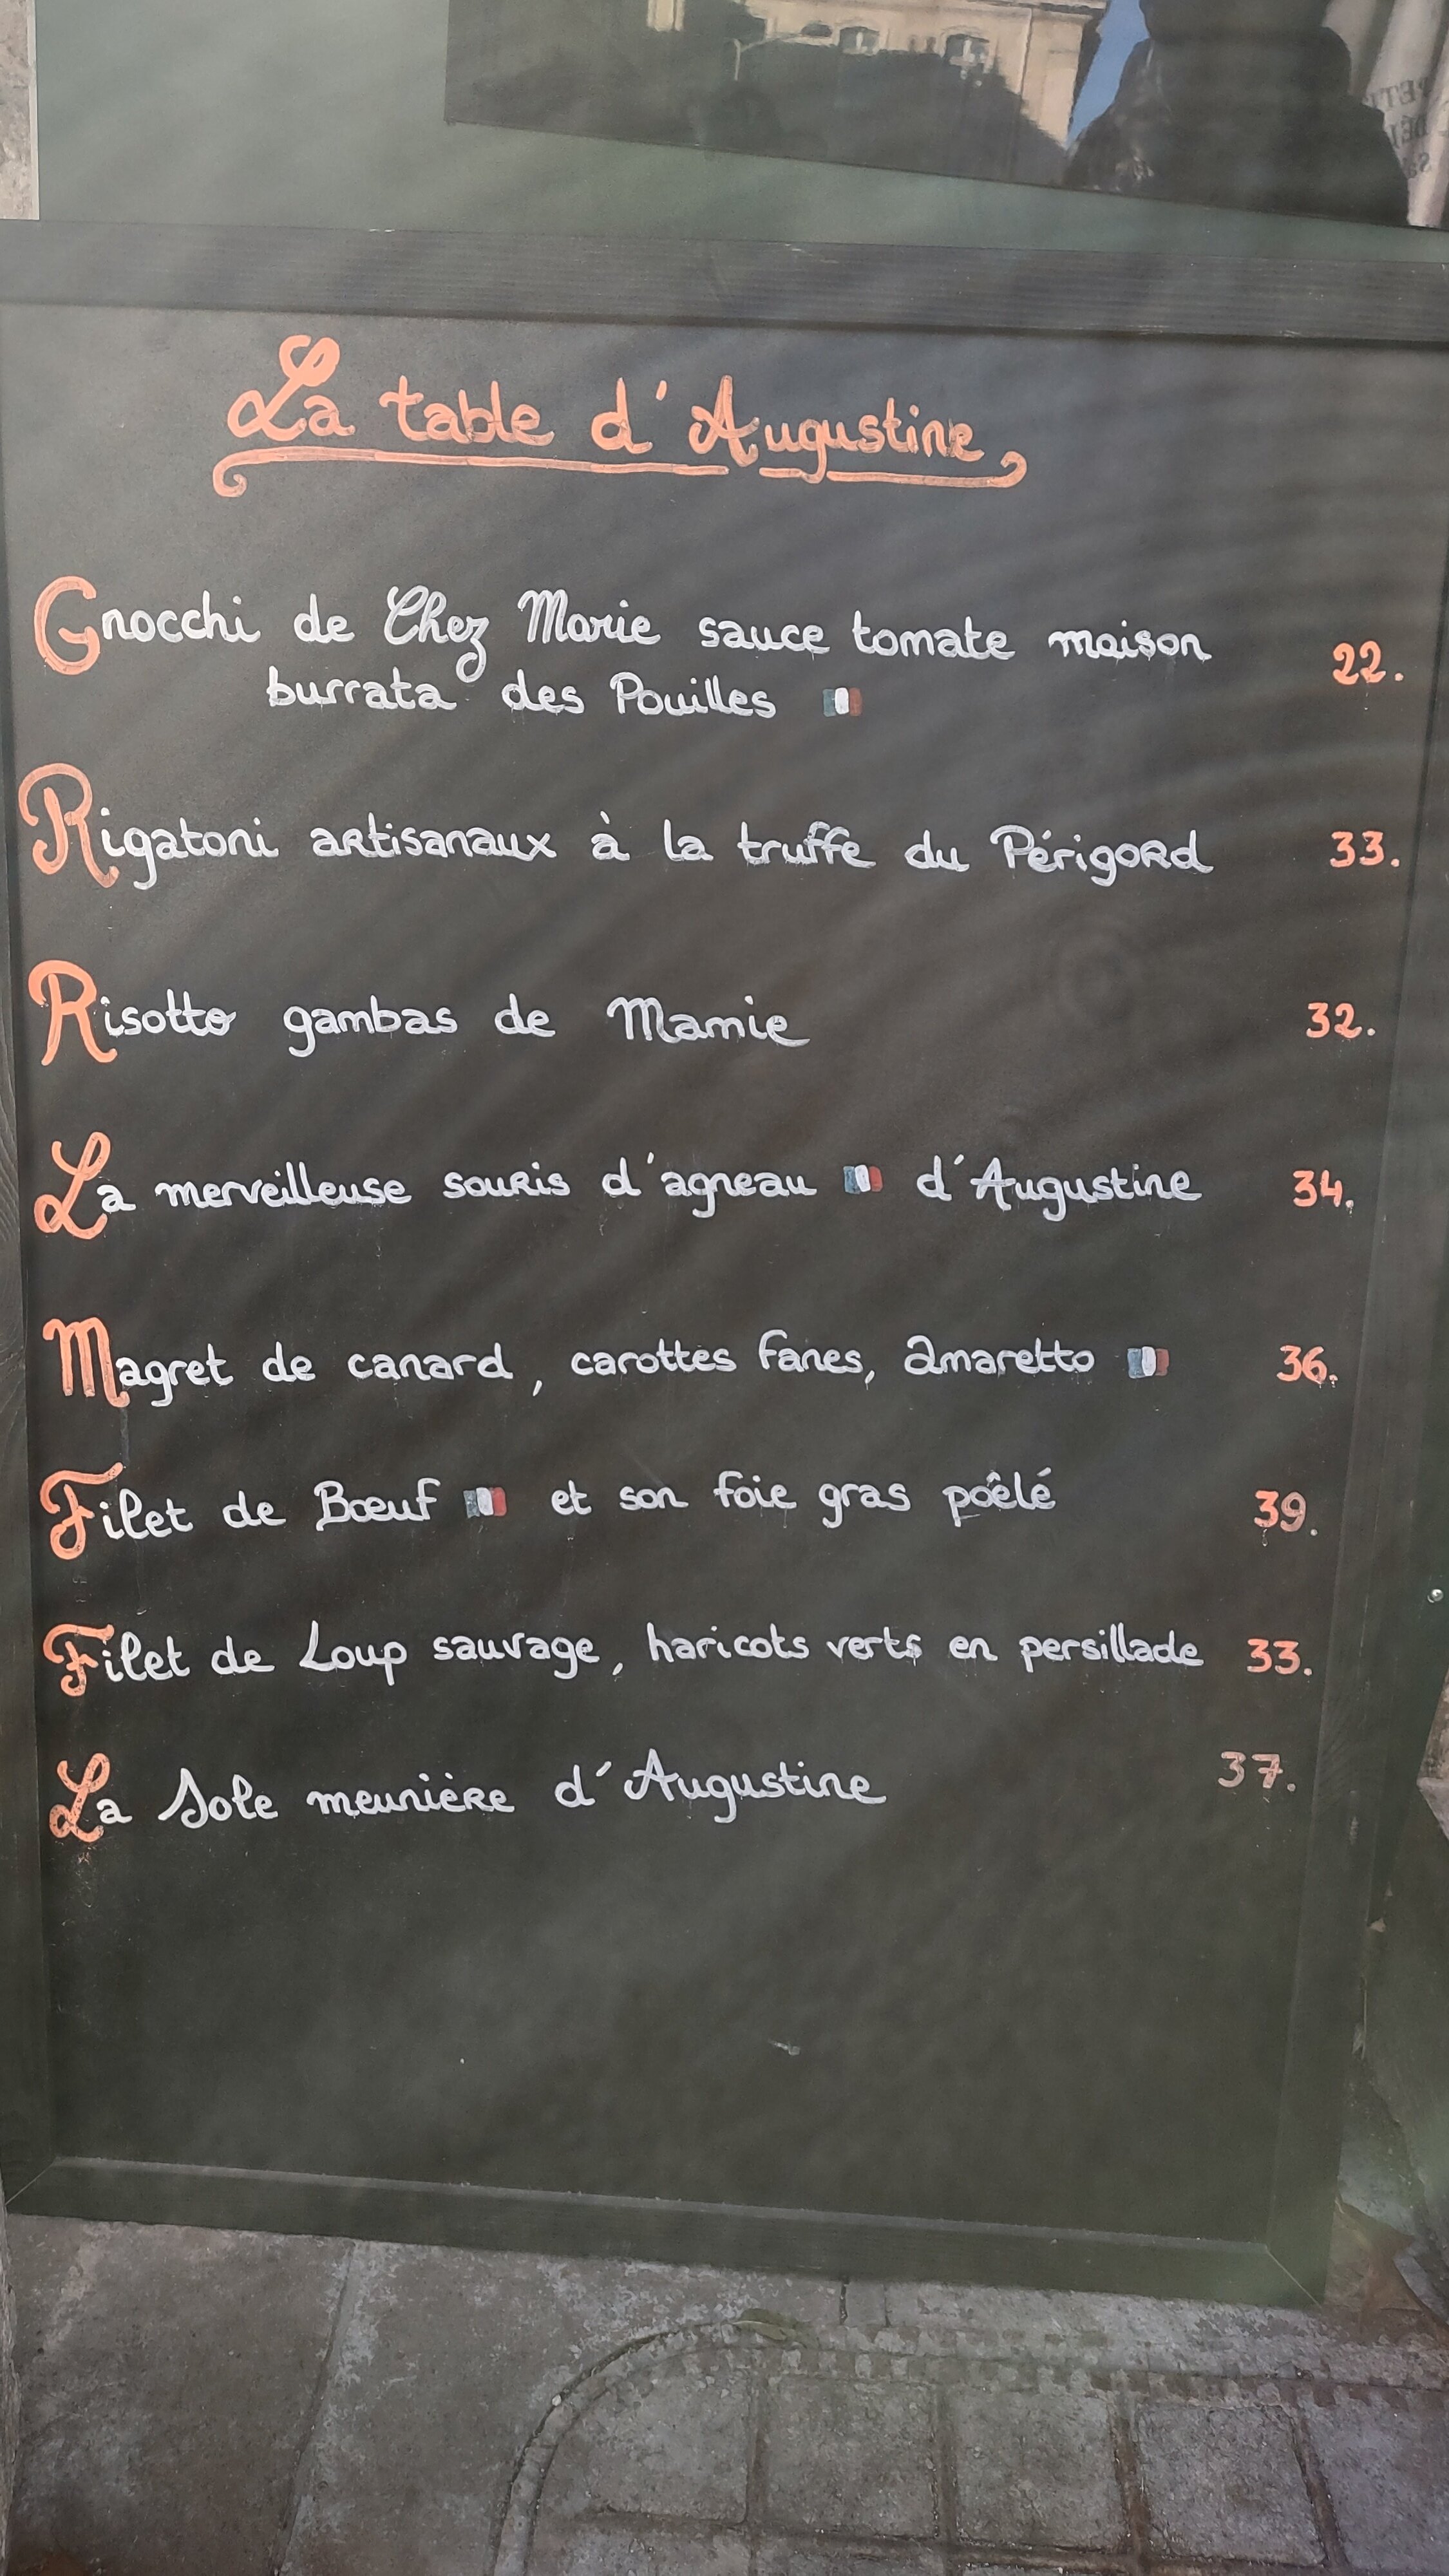 La table d'Augustine
Gnocchi de Chez Marie sauce tomate maison 22.
burrata des Pouilles
Rigatoni artisanaux à la truffe du Périgord 33.
Risotto gambas de Mamie 32.
La merveilleuse souris d'agneau d'Augustine 34.
Magret de canard, carottes fanes, amaretto 36.
Filet de Bœuf et son foie gras poêlé 39.
Filet de Loup sauvage, haricots verts en persillade 33.
La Sole meunière d'Augustine 37.